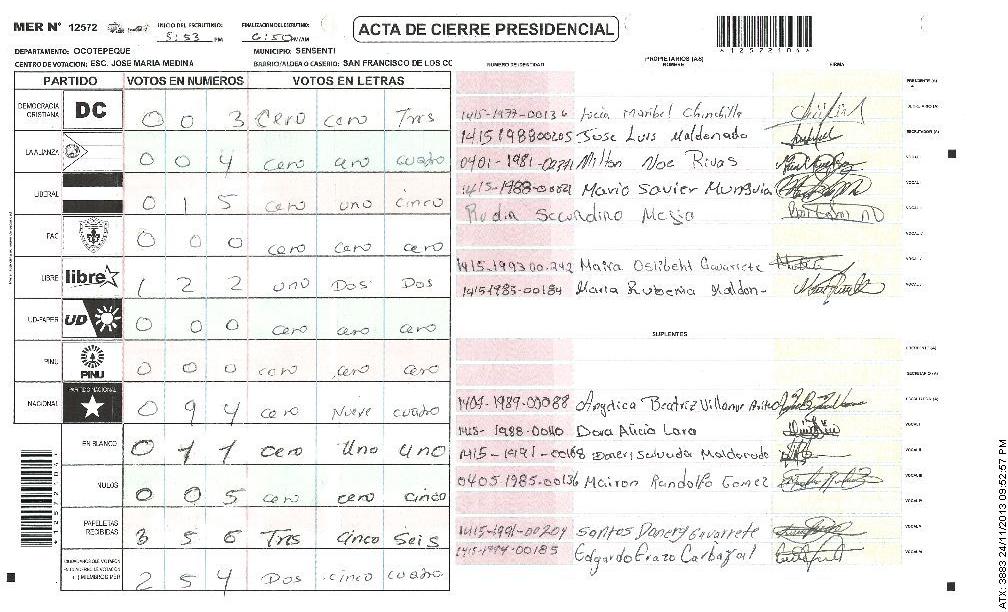 MER Nº 12572
INICIO DEL ESCRUTINIO: 5:53 PM
FINALIZACION ESCRUTINIO: 6:50 PM/AM
ACTA DE CIERRE PRESIDENCIAL
DEPARTAMENTO: OCOTEPEQUE
MUNICIPIO: SENSENTI
CENTRO DE VOTACION: ESC. JOSE MARIA MEDINA
BARRIO/ALDEA O CASERIO: SAN FRANCISCO DE LOS CO
PARTIDO VOTOS EN NUMEROS VOTOS EN LETRAS
DEMOCRACIA CRISTIANA DC 0 0 3 Cero cero Tres
LA ALIANZA 0 0 4 cero cero cuatro
LIBERAL 0 1 5 cero uno cinco
FAC 0 0 0 cero cero cero
LIBRE libre 1 2 2 uno Dos Dos
UD-FAPER UD 0 0 0 cero cero cero
PINU PINU 0 0 0 cero cero cero
NACIONAL PARTIDO NACIONAL 0 9 4 cero Nueve cuatro
EN BLANCO 0 1 1 cero Uno uno
NULOS 0 0 5 cero cero cinco
PAPELETAS RECIBIDAS 3 5 6 Tres cinco Seis
2 5 4 Dos cinco cuatro
NUMERO DE IDENTIDAD PROPIETARIOS (AS) NOMBRE FIRMA
PRESIDENTE (A)
Maribel Chinchilla
1415198800205 Jose Luis Maldonado
Milton Noe Rivas
1415-1988-00021 Mario Savier Munguia
Rudin Secundino Mejia
1415-1993 00242 Maira Oslibeht Gavarrete
1415-1985-00184 Maria Rubenia Maldon-
SUPLENTES
1401-1989-00088 Angelica Beatriz Villamar
1415-1988-00110 Dora Alicia Lara
1415-1991-00168 Maldonado
0405-1985-00136 Mairon Randolfo Gomez
1415-1991-00204 Santos Donery Gavarrete
1415-1994-00185 Edgardo Erazo Carbajal
ATX: 3883 24/11/2013 09:52:57 PM